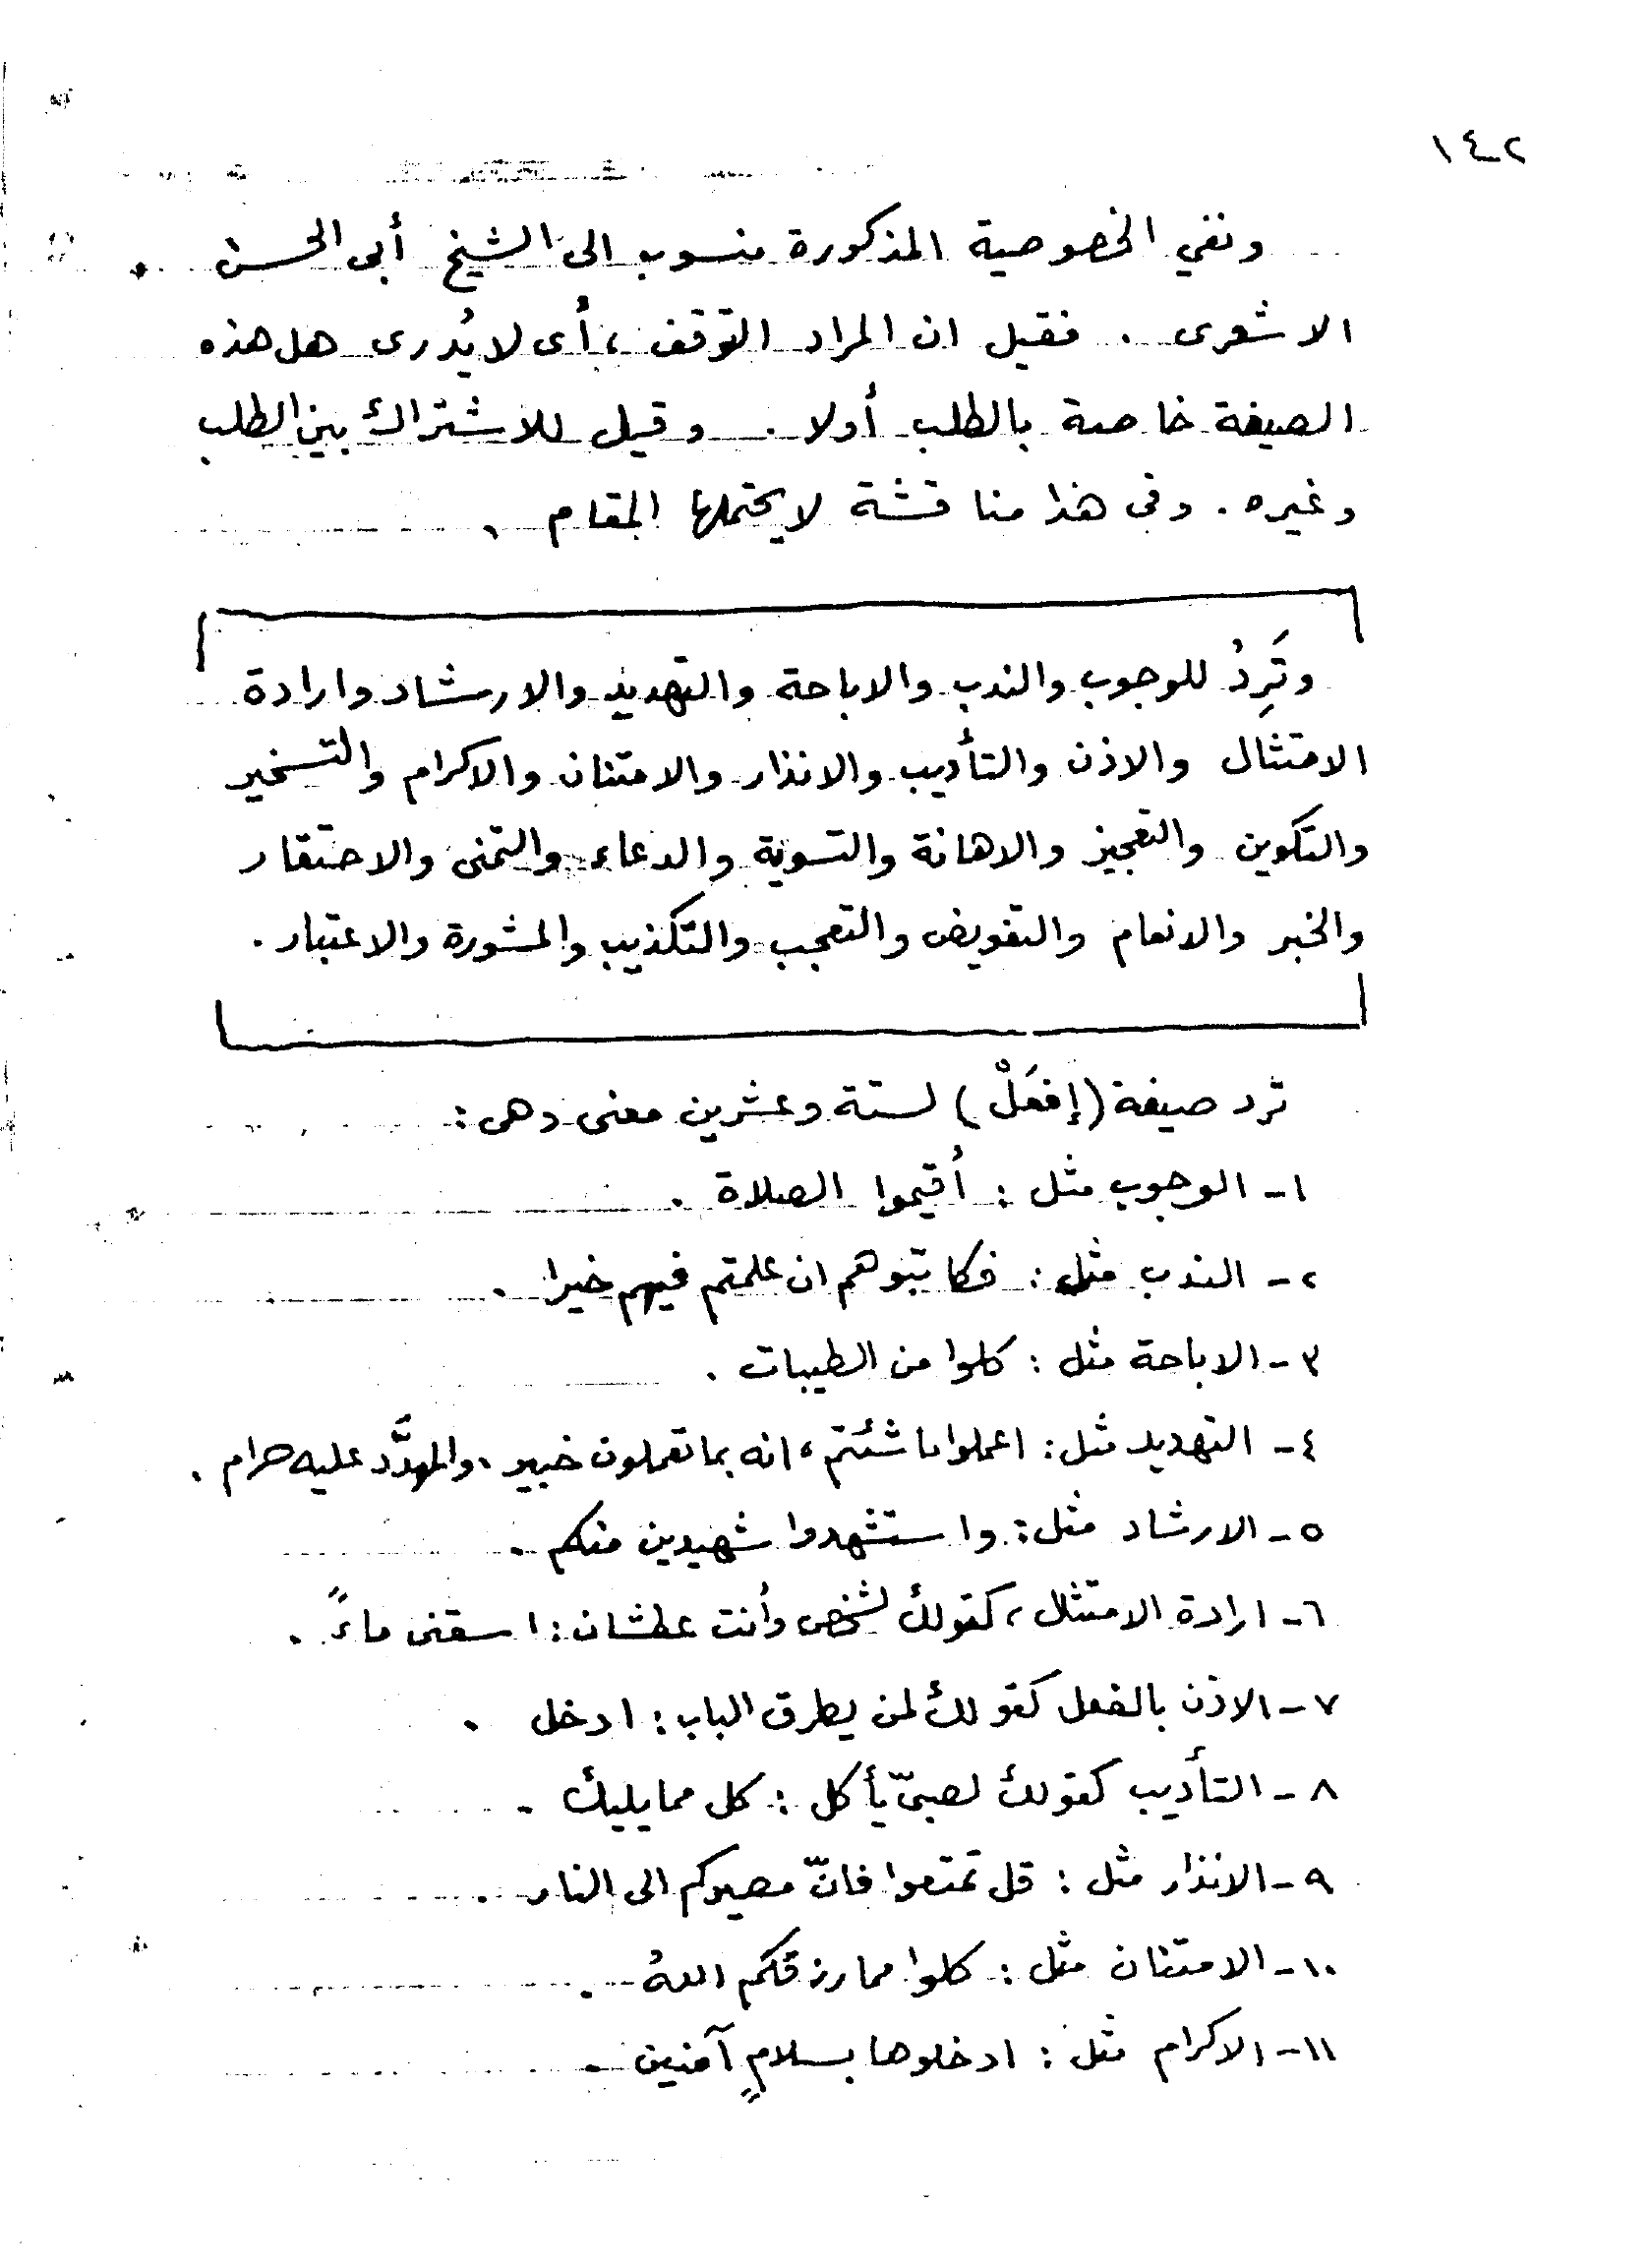 ١٤٢
ونفي الخصوصية المذكورة منسوب الى الشيخ أبى الحسن
الاشعرى . فقيل ان المراد التوقف ، أى لا يُدرى هل هذه
الصيغة خاصة بالطلب أولا . وقيل للاشتراك بين الطلب
وغيره . وفى هذا مناقشة لا يحتملها المقام .
وتَرِدُ للوجوب والندب والاباحة والتهديد والارشاد وارادة
الامتثال والاذن والتأديب والانذار والامتنان والاكرام والتسخير
والتكوين والتعجيز والاهانة والتسوية والدعاء والتمنى والاحتقار
والخبر والانعام والتفويض والتعجب والتكذيب والمشورة والاعتبار .
ترد صيغة (إفعَلْ) لستة وعشرين معنى وهى :
١- الوجوب مثل : أقيموا الصلاة .
٢- الندب مثل : فكاتبوهم ان علمتم فيهم خيرا .
٣- الاباحة مثل : كلوا من الطيبات .
٤- التهديد مثل : اعملوا ما شئتم ، انه بما تعملون خبير . والمهدَّد عليه حرام .
٥- الارشاد مثل : واستشهدوا شهيدين منكم .
٦- ارادة الامتثال ، كقولك لشخص وأنت عطشان : اسقنى ماءً .
٧- الاذن بالفعل كقولك لمن يطرق الباب : ادخل .
٨- التأديب كقولك لصبىّ يأكل : كل مما يليك .
٩- الانذار مثل : قل تمتعوا فانّ مصيركم الى النار .
١٠- الامتنان مثل : كلوا مما رزقكم اللهُ .
١١- الاكرام مثل : ادخلوها بسلامٍ آمنين .